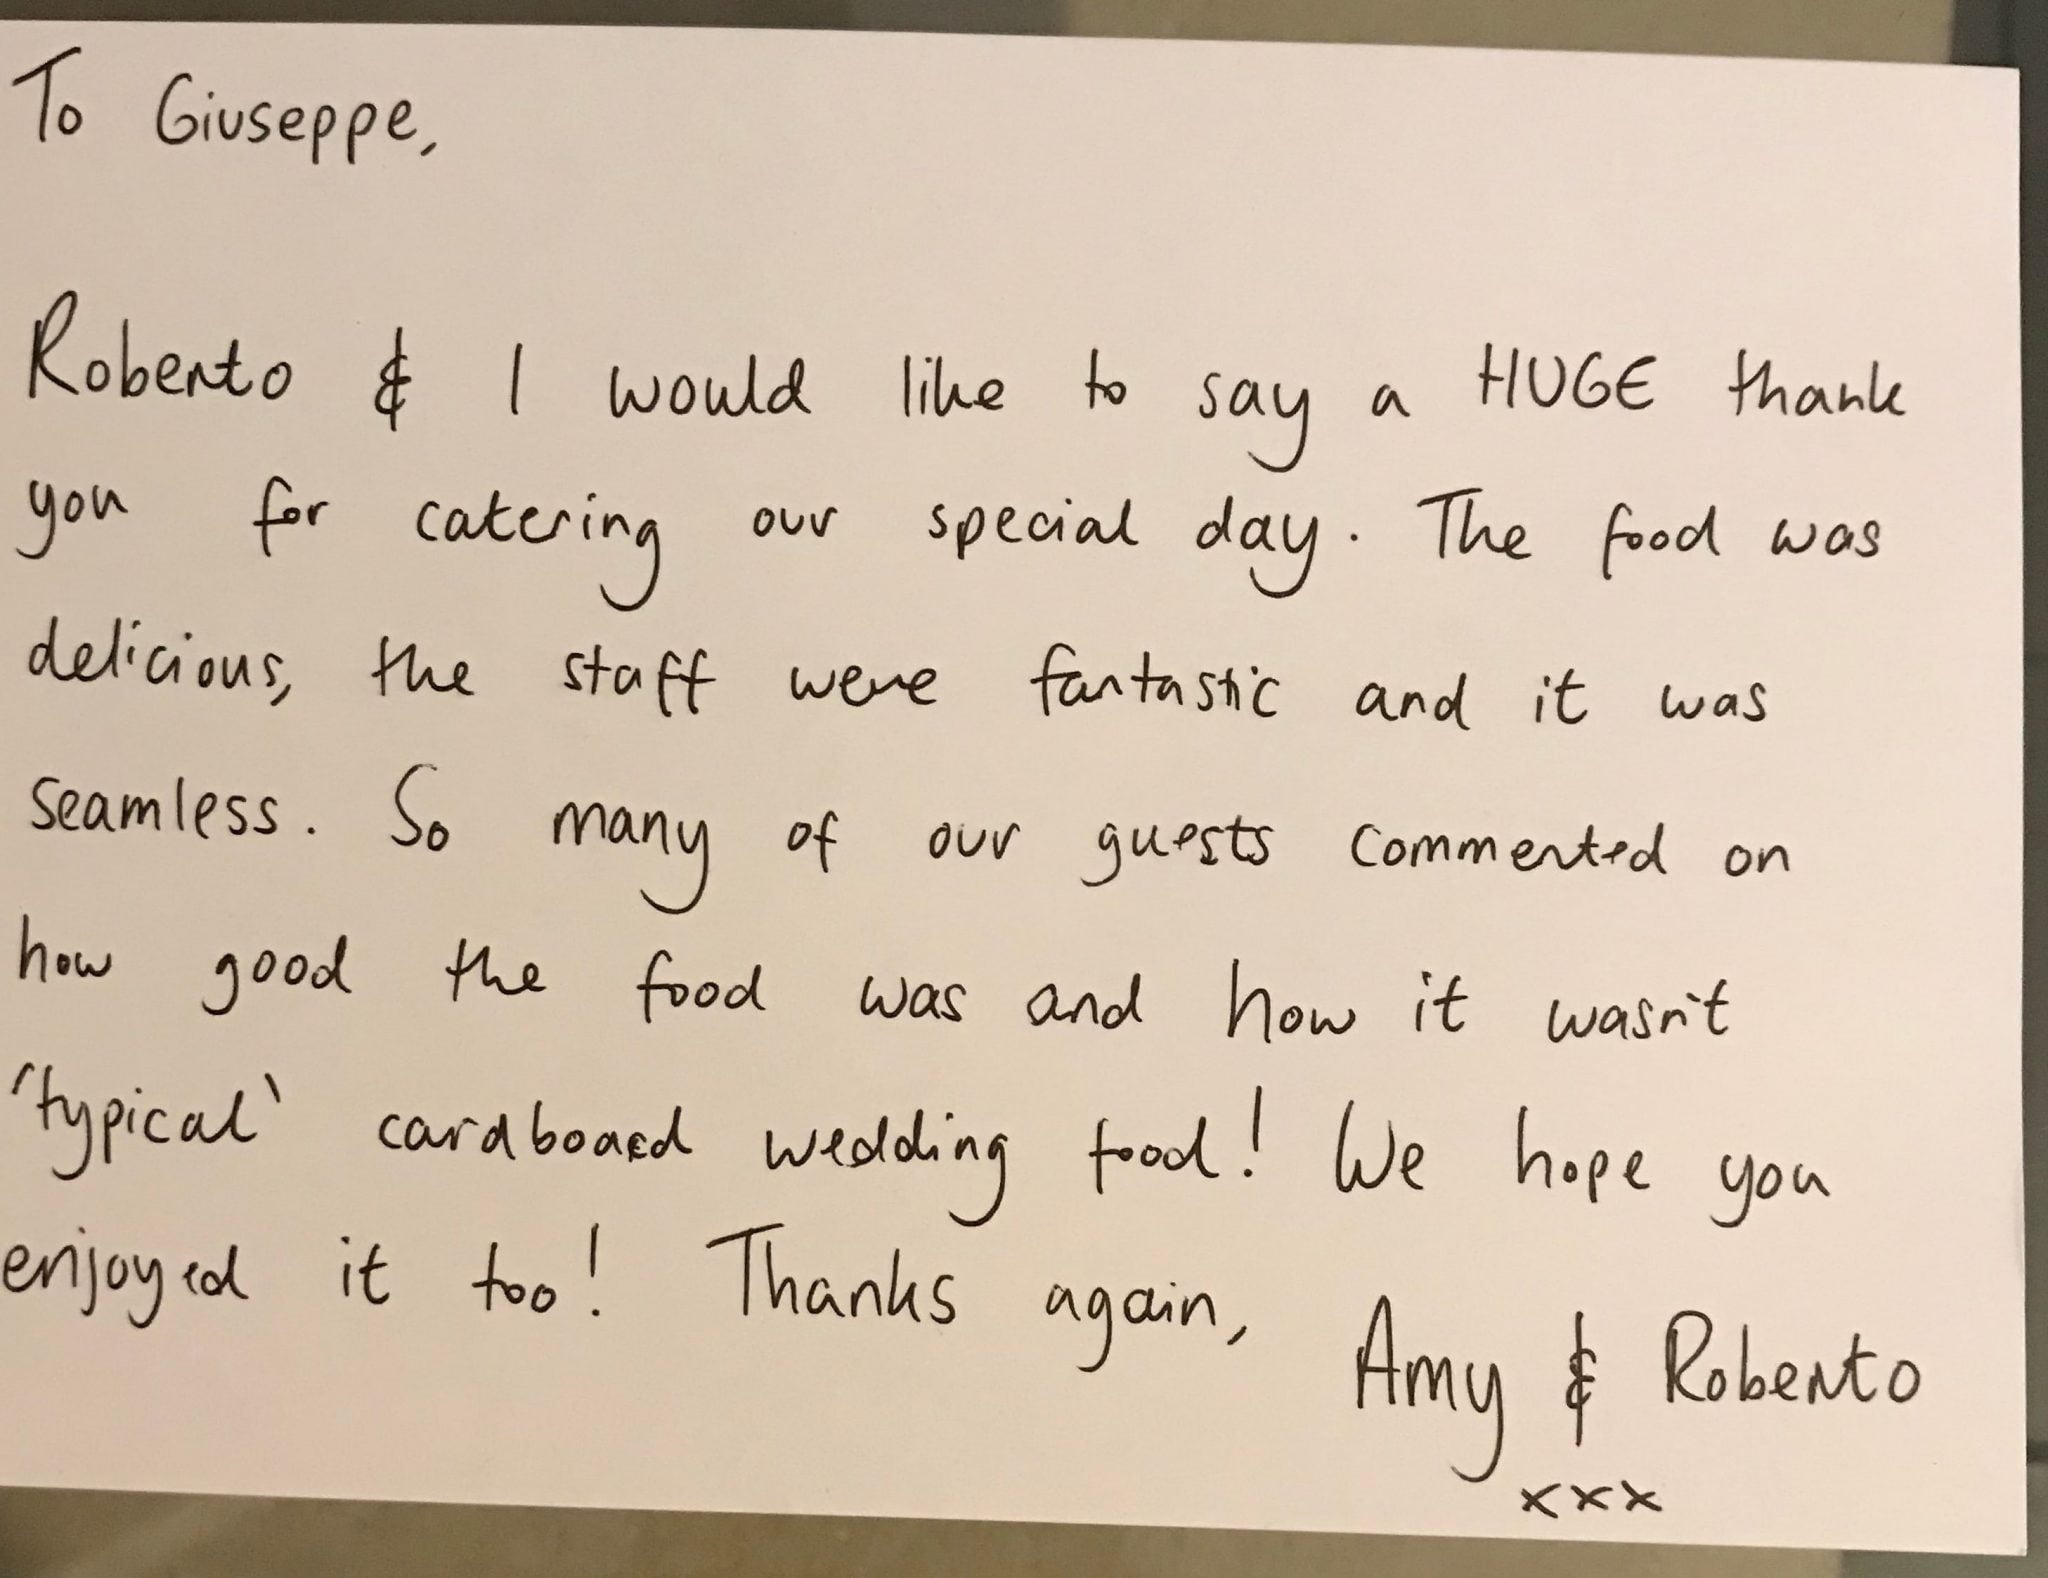 To Giuseppe,
Roberto & I would like to say a HUGE thank
you for catering our special day. The food was
delicious, the staff were fantastic and it was
seamless. So many of our guests commented on
how good the food was and how it wasn't
'typical' cardboard wedding food! We hope you
enjoyed it too! Thanks again,
Amy & Roberto
xxx